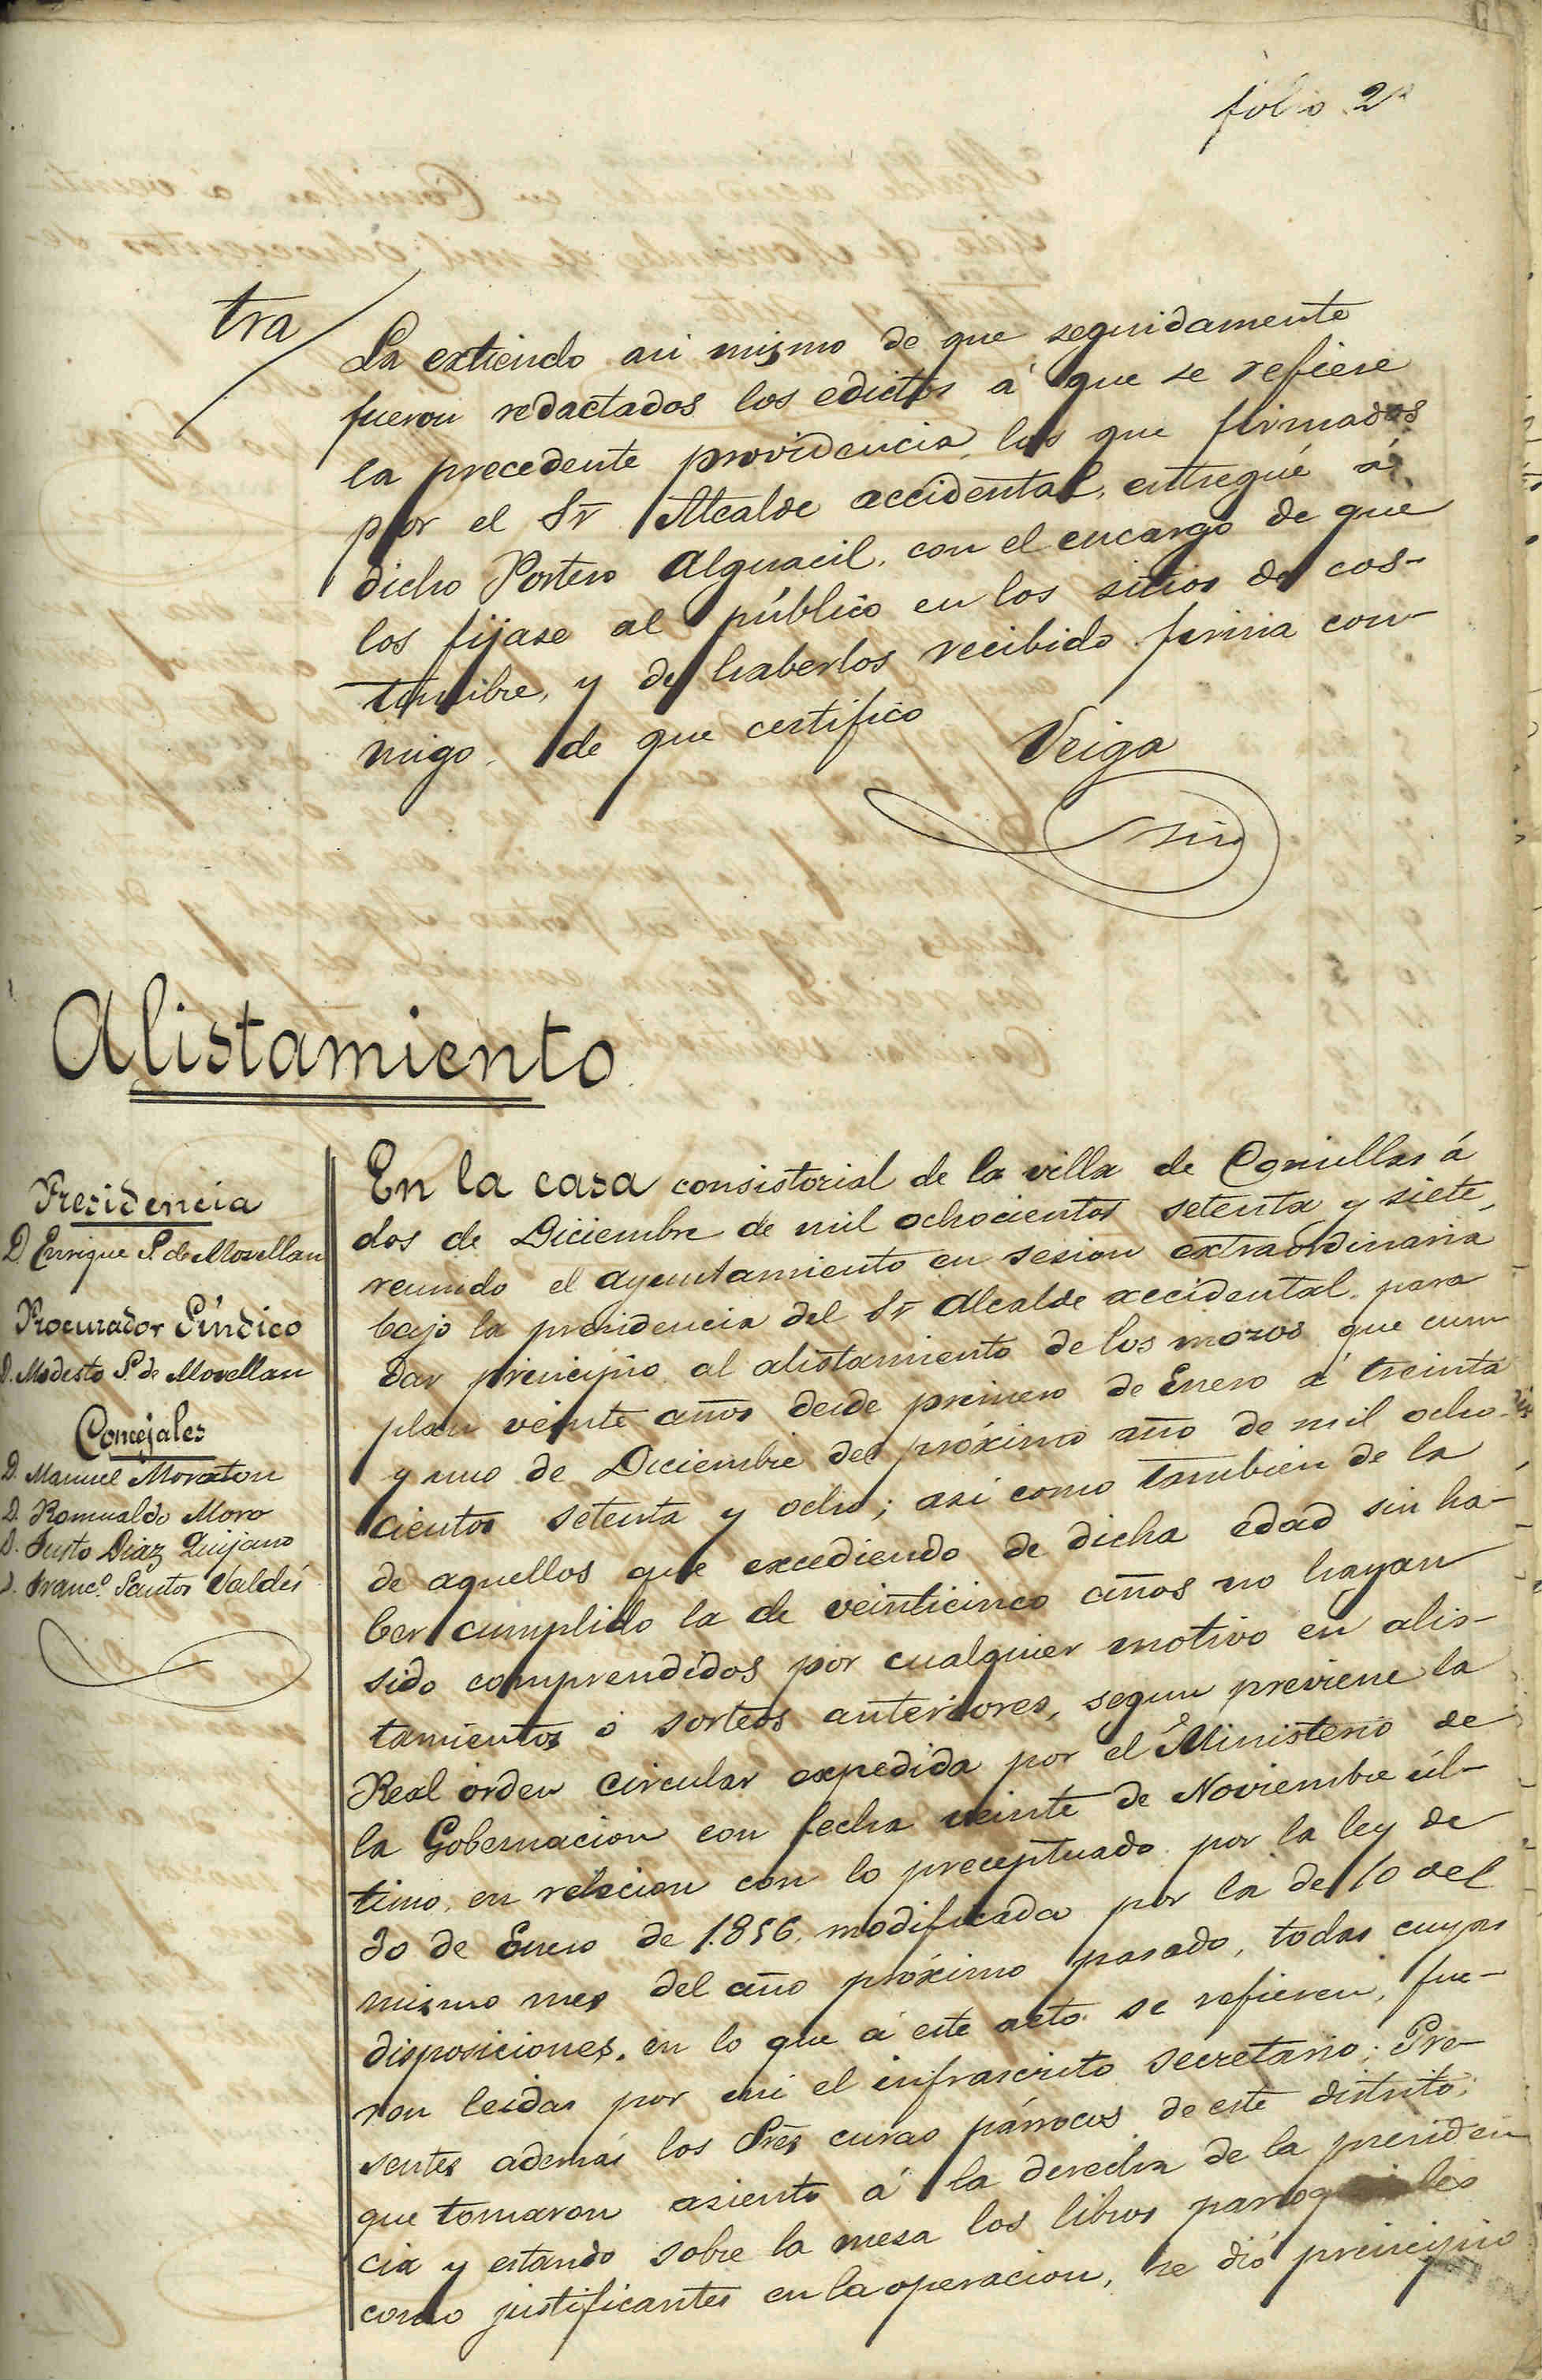 folio 2º
tra
La extiendo asi mismo de que seguidamente
fueron redactados los edictos á que se refiere
la precedente providencia, los que firmados
por el Sr Alcalde accidental, entregué á
dicho Portero Alguacil, con el encargo de que
los fijase al público en los sitios de cos-
tumbre, y de haberlos recibido firma con-
migo, de que certifico
Veiga
Alistamiento
Presidencia
D. Enrique S. de Movellan
Procurador Síndico
D. Modesto S. de Movellan
Concejales
D. Manuel Moraton
D. Romualdo Moro
D. Justo Diaz Quijano
D. Francº. Santos Valdés
En la casa consistorial de la villa de Comillas á
dos de Diciembre de mil ochocientos setenta y siete,
reunido el ayuntamiento en sesion extraordinaria
bajo la presidencia del Sr Alcalde accidental, para
dar principio al alistamiento de los mozos que cum
plan veinte años desde primero de Enero á treinta
y uno de Diciembre del próximo año de mil ocho-
cientos setenta y ocho; asi como tambien de la
de aquellos que excediendo de dicha edad sin ha-
ber cumplido la de veinticinco años no hayan
sido comprendidos por cualquier motivo en alis-
tamientos ó sorteos anteriores, segun previene la
Real orden circular expedida por el Ministerio de
la Gobernacion con fecha veinte de Noviembre úl-
timo, en relacion con lo preceptuado por la ley de
30 de Enero de 1.856, modificada por la de 10 del
mismo mes del año próximo pasado, todas cuyas
disposiciones, en lo que á este acto se refieren, fue-
ron leidas por mi el infrascrito secretario; Pre-
sentes además los Sres curas párrocos de este distrito,
que tomaron asiento á la derecha de la presiden
cia y estando sobre la mesa los libros parroquiales
como justificantes en la operacion, se dió principio